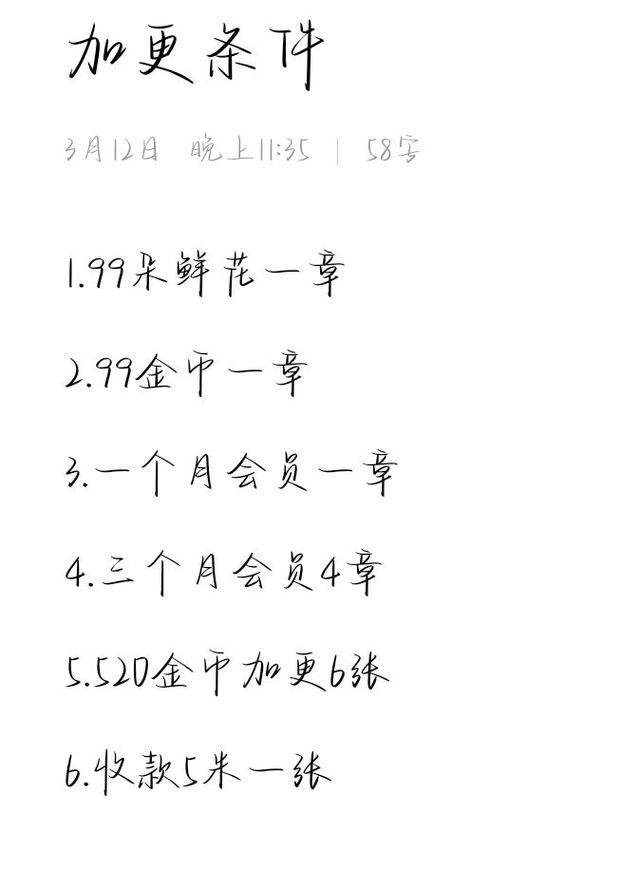 加更条件
3月12日 晚上11:35 | 58字
1.99朵鲜花一章
2.99金币一章
3.一个月会员一章
4.三个月会员4章
5.520金币加更6张
6.收款5米一张